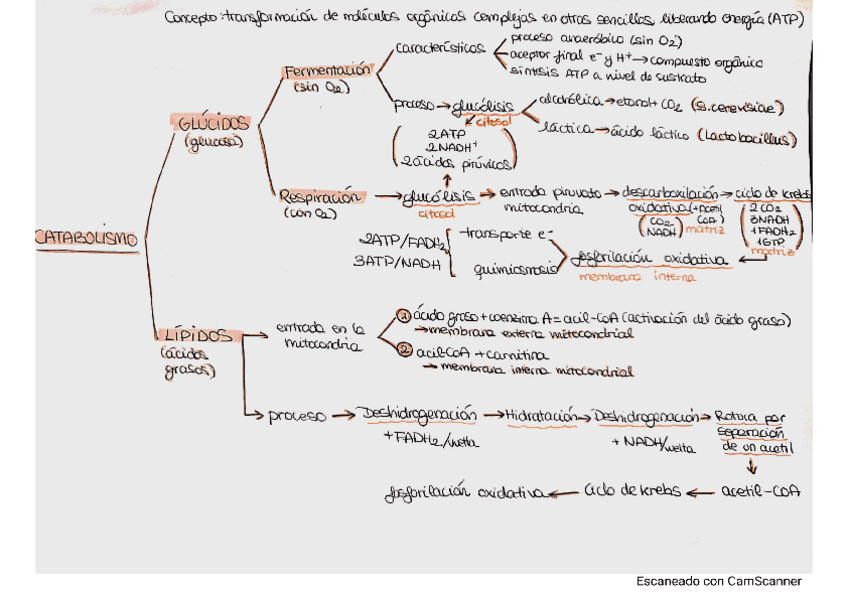 Concepto: transformación de moléculas orgánicas complejas en otras sencillas, liberando energía (ATP)
CATABOLISMO
GLÚCIDOS
(glucosa)
Fermentación
(sin O₂)
características
proceso anaeróbico (sin O₂)
aceptor final e⁻ y H⁺ → compuesto orgánico
síntesis ATP a nivel de sustrato
proceso → glucólisis
citosol
alcohólica → etanol + CO₂ (S. cerevisiae)
láctica → ácido láctico (Lactobacillus)
2ATP
2NADH⁺
2 ácidos pirúvicos
Respiración
(con O₂)
→ glucólisis → entrada piruvato → descarboxilación → ciclo de krebs
citosol
mitocondria
oxidativa (+Acetil
CoA)
(CO₂
NADH) matriz
2CO₂
3NADH
1FADH₂
1GTP
matriz
fosforilación oxidativa
membrana interna
transporte e⁻
quimiosmosis
2ATP/FADH₂
3ATP/NADH
LÍPIDOS
(ácidos
grasos)
entrada en la
mitocondria
① ácido graso + coenzima A = acil-CoA (activación del ácido graso)
→ membrana externa mitocondrial
② acil-CoA + carnitina
→ membrana interna mitocondrial
proceso → Deshidrogenación → Hidratación → Deshidrogenación → Rotura por
separación
de un acetil
+ FADH₂/vuelta
+ NADH/vuelta
fosforilación oxidativa ← Ciclo de krebs ← acetil-COA
Escaneado con CamScanner